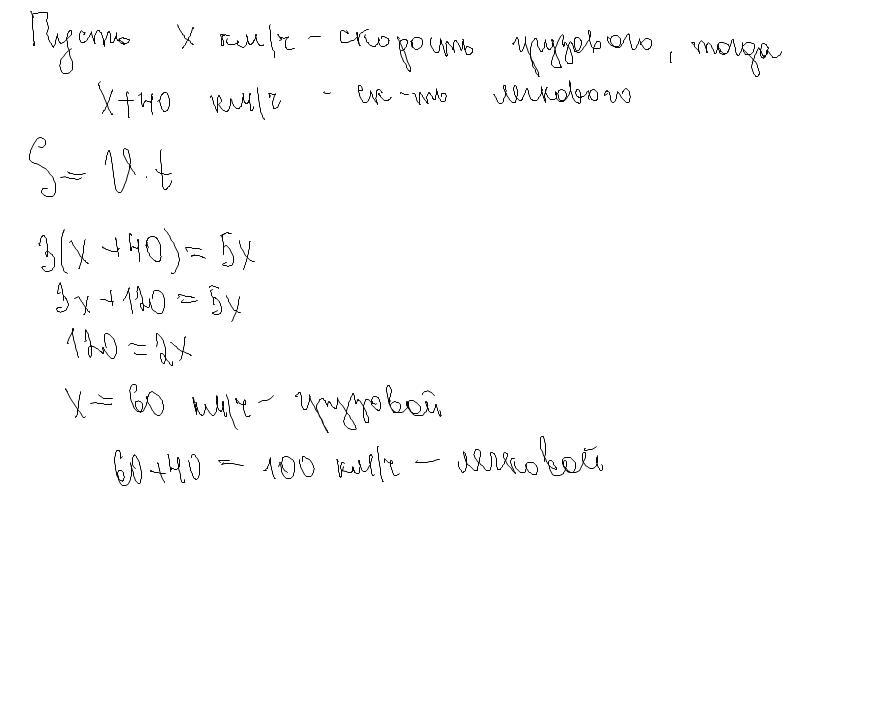 Пусть x км/ч - скорость грузового, тогда
x+40 км/ч - ск-ть легкового
S = V · t
3(x+40) = 5x
3x+120 = 5x
120 = 2x
x = 60 км/ч - грузовой
60+40 = 100 км/ч - легковой